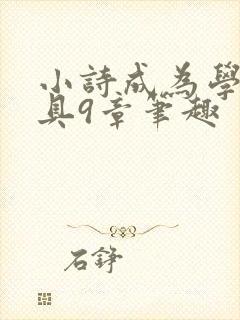 小詩成為學
具9章筆趣
石錚